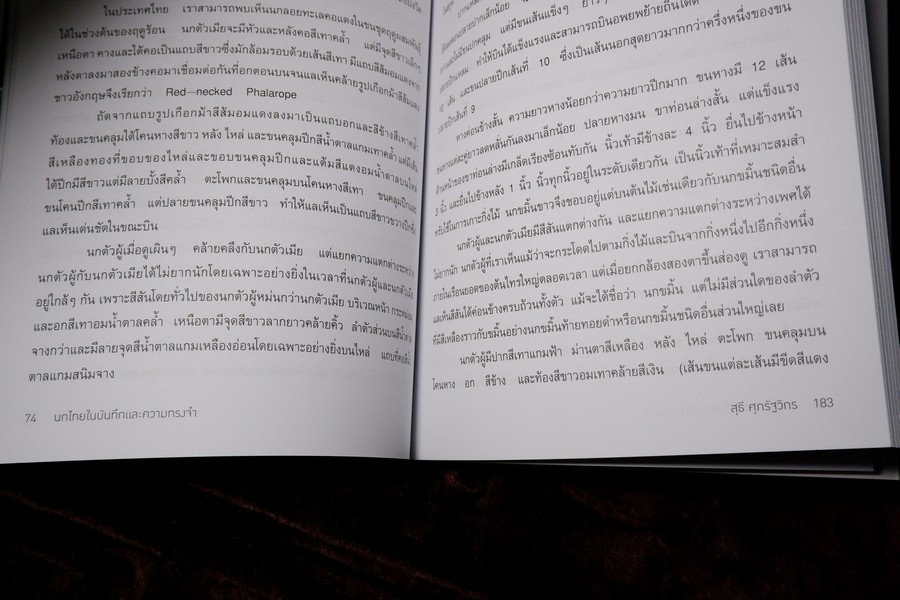 ในประเทศไทย เราสามารถพบเห็นนกลอยทะเลคอแดงในขนชุดฤดูผสมพันธุ์
ได้ในช่วงต้นของฤดูร้อน นกตัวเมียจะมีหัวและหลังคอสีเทาคล้ำ แต่มีจุดสีขาวเล็กๆ
เหนือตา คางและใต้คอเป็นแถบสีขาวซึ่งมักล้อมรอบด้วยเส้นสีเทา มีแถบสีส้มอมแดงจาก
หลังตาลงมาสองข้างคอมาเชื่อมต่อกันที่อกตอนบนจนแลเห็นคล้ายรูปเกือกม้าสีส้มแดง
ชาวอังกฤษจึงเรียกว่า Red—necked Phalarope
ถัดจากแถบรูปเกือกม้าสีส้มอมแดงลงมาเป็นแถบอกและสีข้างสีเทาคล้ำ
ท้องและขนคลุมใต้โคนหางสีขาว หลัง ไหล่ และขนคลุมปีกสีน้ำตาลแกมเทาคล้ำ แต่มีเส้น
สีเหลืองทองที่ขอบของไหล่และขอบขนคลุมปีกและแต้มสีแดงอมน้ำตาลบนไหล่
ใต้ปีกมีสีขาวแต่มีลายบั้งสีคล้ำ ตะโพกและขนคลุมบนโคนหางสีเทา ขนคลุมปีกและ
ขนโคนปีกสีเทาคล้ำ แต่ปลายขนคลุมปีกสีขาว ทำให้แลเห็นเป็นแถบสีขาวขวางปีก
แลเห็นเด่นชัดในขณะบิน
นกตัวผู้เมื่อดูเผินๆ คล้ายคลึงกับนกตัวเมีย แต่แยกความแตกต่างระหว่าง
นกตัวผู้กับนกตัวเมียได้ไม่ยากนักโดยเฉพาะอย่างยิ่งในเวลาที่นกตัวผู้และนกตัวเมีย
อยู่ใกล้ๆ กัน เพราะสีสันโดยทั่วไปของนกตัวผู้หม่นกว่านกตัวเมีย บริเวณหน้า กระหม่อม
และอกสีเทาอมน้ำตาลคล้ำ เหนือตามีจุดสีขาวลากยาวคล้ายคิ้ว ลำตัวส่วนบนสีน้ำตาล
จางกว่าและมีลายจุดสีน้ำตาลแกมเหลืองอ่อนโดยเฉพาะอย่างยิ่งบนไหล่ แถบที่คอสีน้ำ
ตาลแกมสนิมจาง
74 นกไทยในบันทึกและความทรงจำ
10 เส้น และขนปลายปีกเส้นที่ 10 ซึ่งเป็นเส้นนอกสุดยาวมากกว่าครึ่งหนึ่งของขน
ปลายปีกเส้นที่ 9
หางค่อนข้างสั้น ความยาวหางน้อยกว่าความยาวปีกมาก ขนหางมี 12 เส้น
ขนหางแต่ละคู่ยาวลดหลั่นกันลงมาเล็กน้อย ปลายหางมน ขาท่อนล่างสั้น แต่แข็งแรง
ด้านหน้าของขาท่อนล่างมีเกล็ดเรียงซ้อนทับกัน นิ้วเท้ามีข้างละ 4 นิ้ว ยื่นไปข้างหน้า
3 นิ้ว และยื่นไปข้างหลัง 1 นิ้ว นิ้วทุกนิ้วอยู่ในระดับเดียวกัน เป็นนิ้วเท้าที่เหมาะสมสำ
หรับใช้ในการเกาะกิ่งไม้ นกขมิ้นขาวจึงชอบอยู่แต่บนต้นไม้เช่นเดียวกับนกขมิ้นชนิดอื่น
นกตัวผู้และนกตัวเมียมีสีสันแตกต่างกัน และแยกความแตกต่างระหว่างเพศได้
ไม่ยากนัก นกตัวผู้ที่เราเห็นแม้ว่าจะกระโดดไปตามกิ่งไม้และบินจากกิ่งหนึ่งไปอีกกิ่งหนึ่ง
ภายในเรือนยอดของต้นไทรใหญ่ตลอดเวลา แต่เมื่อยกกล้องสองตาขึ้นส่องดู เราสามารถ
แลเห็นสีสันได้ค่อนข้างครบถ้วนทั้งตัว แม้จะได้ชื่อว่า นกขมิ้น แต่ไม่มีส่วนใดของลำตัว
ที่มีสีเหลืองราวกับขมิ้นอย่างนกขมิ้นท้ายทอยดำหรือนกขมิ้นชนิดอื่นส่วนใหญ่เลย
นกตัวผู้มีปากสีเทาแกมฟ้า ม่านตาสีเหลือง หลัง ไหล่ ตะโพก ขนคลุมบน
โคนหาง อก สีข้าง และท้องสีขาวอมเทาคล้ายสีเงิน (เส้นขนแต่ละเส้นมีขีดสีแดง
สุธี ศุภรัฐวิกร 183